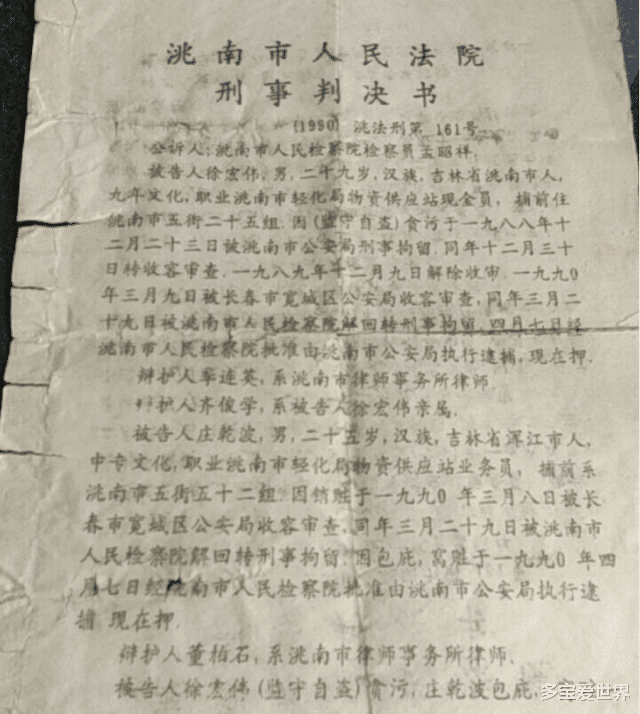 洮南市人民法院
刑事判决书
(1990) 洮法刑第 161号
公诉人;洮南市人民检察院检察员孟昭祥.
被告人徐宏伟,男,二十九岁,汉族,吉林省洮南市人,
九年文化,职业洮南市轻化局物资供应站现金员, 捕前住
洮南市五街二十五组.因(监守自盗)贪污于一九八八年十
二月二十三日被洮南市公安局刑事拘留.同年十二月三十
日转收容审查.一九八九年十二月九日解除收审.一九九0
年三月九日被长春市宽城区公安局收容审查,同年三月二
十九日被洮南市人民检察院解回转刑事拘留.四月七日经
洮南市人民检察院批准由洮南市公安局执行逮捕,现在押.
辩护人 连英,系洮南市律师事务所律师.
护人齐俊学,系被告人徐宏伟亲属.
被告人庄乾波,男,二十五岁,汉族,吉林省浑江市人,
中专文化,职业洮南市轻化局物资供应站业务员, 捕前系
洮南市五街五十二组.因销赃于一九九0 年三月八日被长
春市宽城区公安局收容审查.同年三月二十九日被洮南市
人民检察院解回转刑事拘留.因包庇,窝赃于一九九0 年四
月七日经 南市人民检察院批准由洮南市公安局执行逮
捕,现在押.
辩护人董柏石,系洮南市律师事务所律师.
被告人徐宏伟(监守自盗)贪污,庄乾波包庇,
多宝爱世界